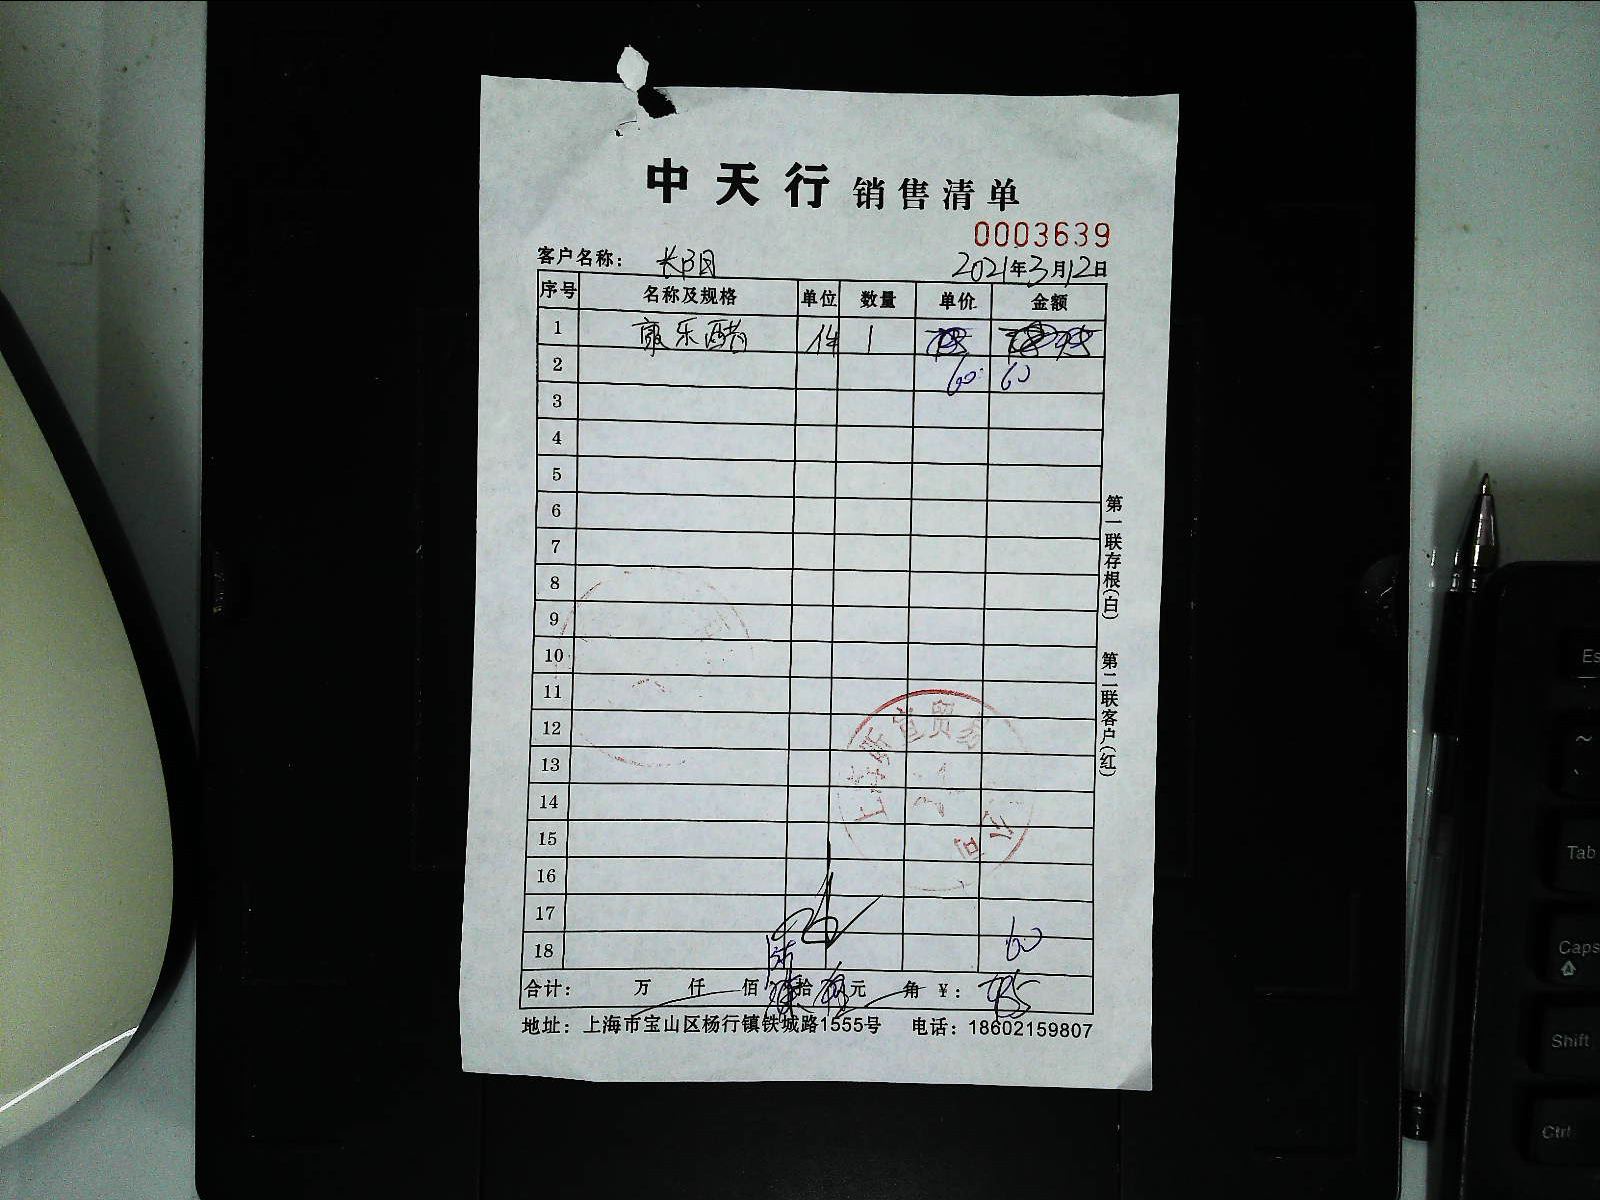 中天行 销售清单
0003639
客户名称： 长阳 2021年3月12日
序号 名称及规格 单位 数量 单价 金额
1 康乐醋 件 1
2 60 60
3
4
5
6
7
8
9
10
11
12
13
14
15
16
17
18 60
合计： 万 仟 佰 拾 元 角 ￥：
地址：上海市宝山区杨行镇铁城路1555号 电话：18602159807
第一联存根(白) 第二联客户(红)
上海 贸易 公司
Es
~
Tab
Caps
Shift
Ctrl